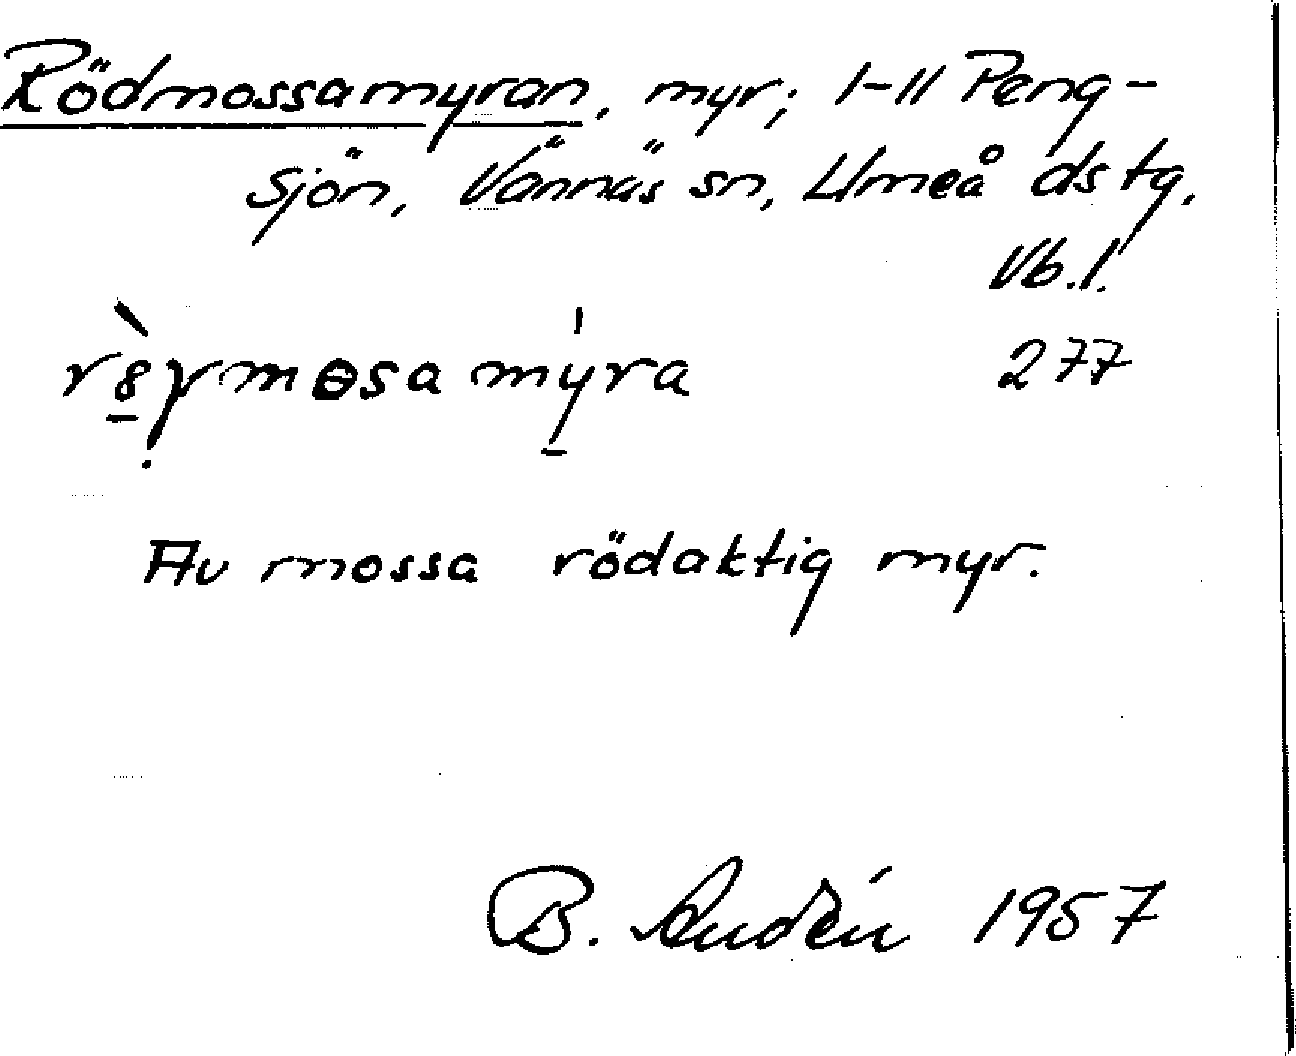 Rödmossamyran, myr; I-II Peng-
sjön, Vännäs sn, Umeå dstg,
Vb.l.
277
Av mossa rödaktig myr.
B. Audén 1957